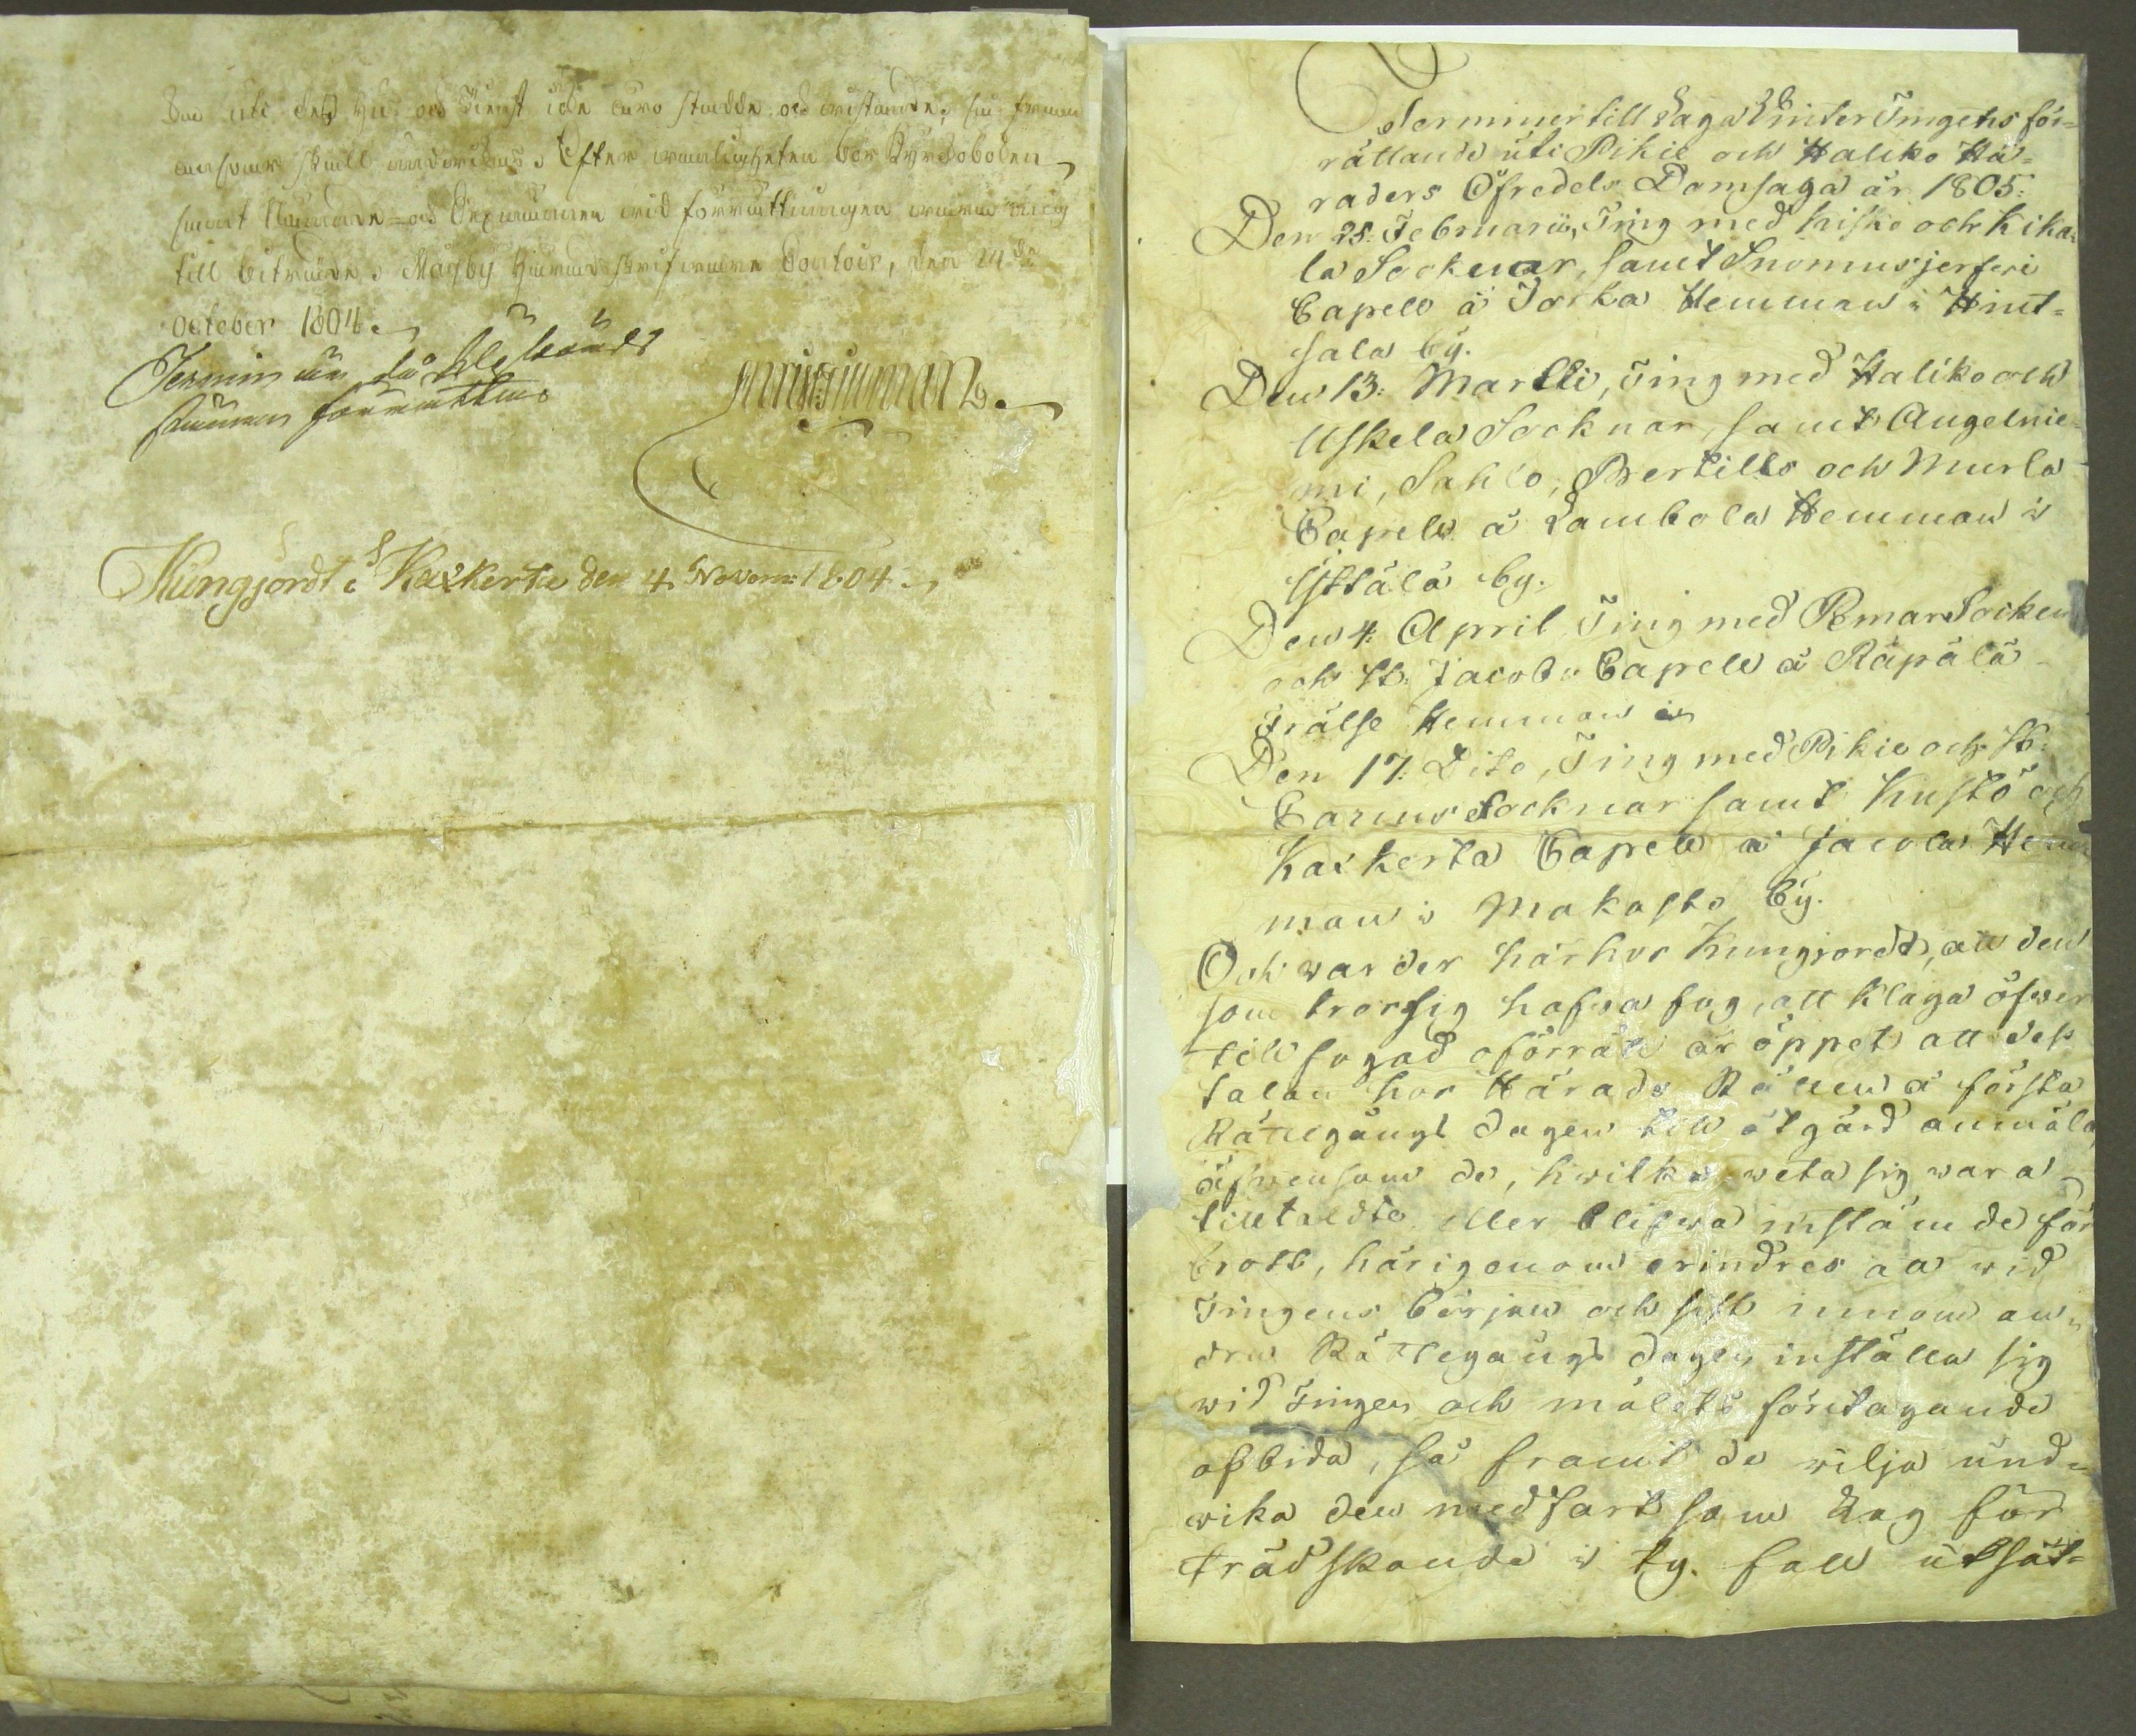 och Tienst icke äro stadde och
skall Efter wanligheten bör Kyrckobolen
samt Nämnde- och wid förrättningen wara
till biträde. Mägby Contoir, den 24de
October 1804.
Termin
Kungjordt i Kaxkerta den 4 Novem: 1804.
Terminer till Laga Winter Tingens för-
rättande uti Pikie och Haliko Hä-
raders Öfredels Domsaga år 1805:
Den 25: Februarii, Ting med Kisko och Kika-
la Socknar, samt Suomusjerfvi
Capell å Torka Hemman i Hint-
sala by.
Den 13: Martii, Ting med Haliko och
Uskela Socknar, samt Angelnie-
mi, Sahlo, Bertills och Murla
Capell å Lambola Hemman i
Ysttälä by.
Den 4: April Ting med Pemar Socken
och St: Jacobs Capell å Räpälä
Frälse Hemman i
Den 17: Dito, Ting med Pikie och St:
Carins Socknar samt Kustö och
Kaxkerta Capell å Jacola Hem-
man i Makasto By.
Och warder härhos Kungjordt, att den
som tror sig hafwa fog, att klaga öfwer
tillfogad oförrätt är öppet att dess
talan hos Härads Rätten å första
Rättegångs dagen till åtgärd anmäla,
äfwensom de, hwilka weta sig wara
tilltaldte eller blifwa instämde för
brott, härigenom erindres att wid
Tingens början och sist innom an-
dra Rättegångs dagen inställa sig
wid Tingen och målets företagande
afbida, så framt de wilja und-
wika den medfart som Lag för
trädskande i ty. fall utsät-